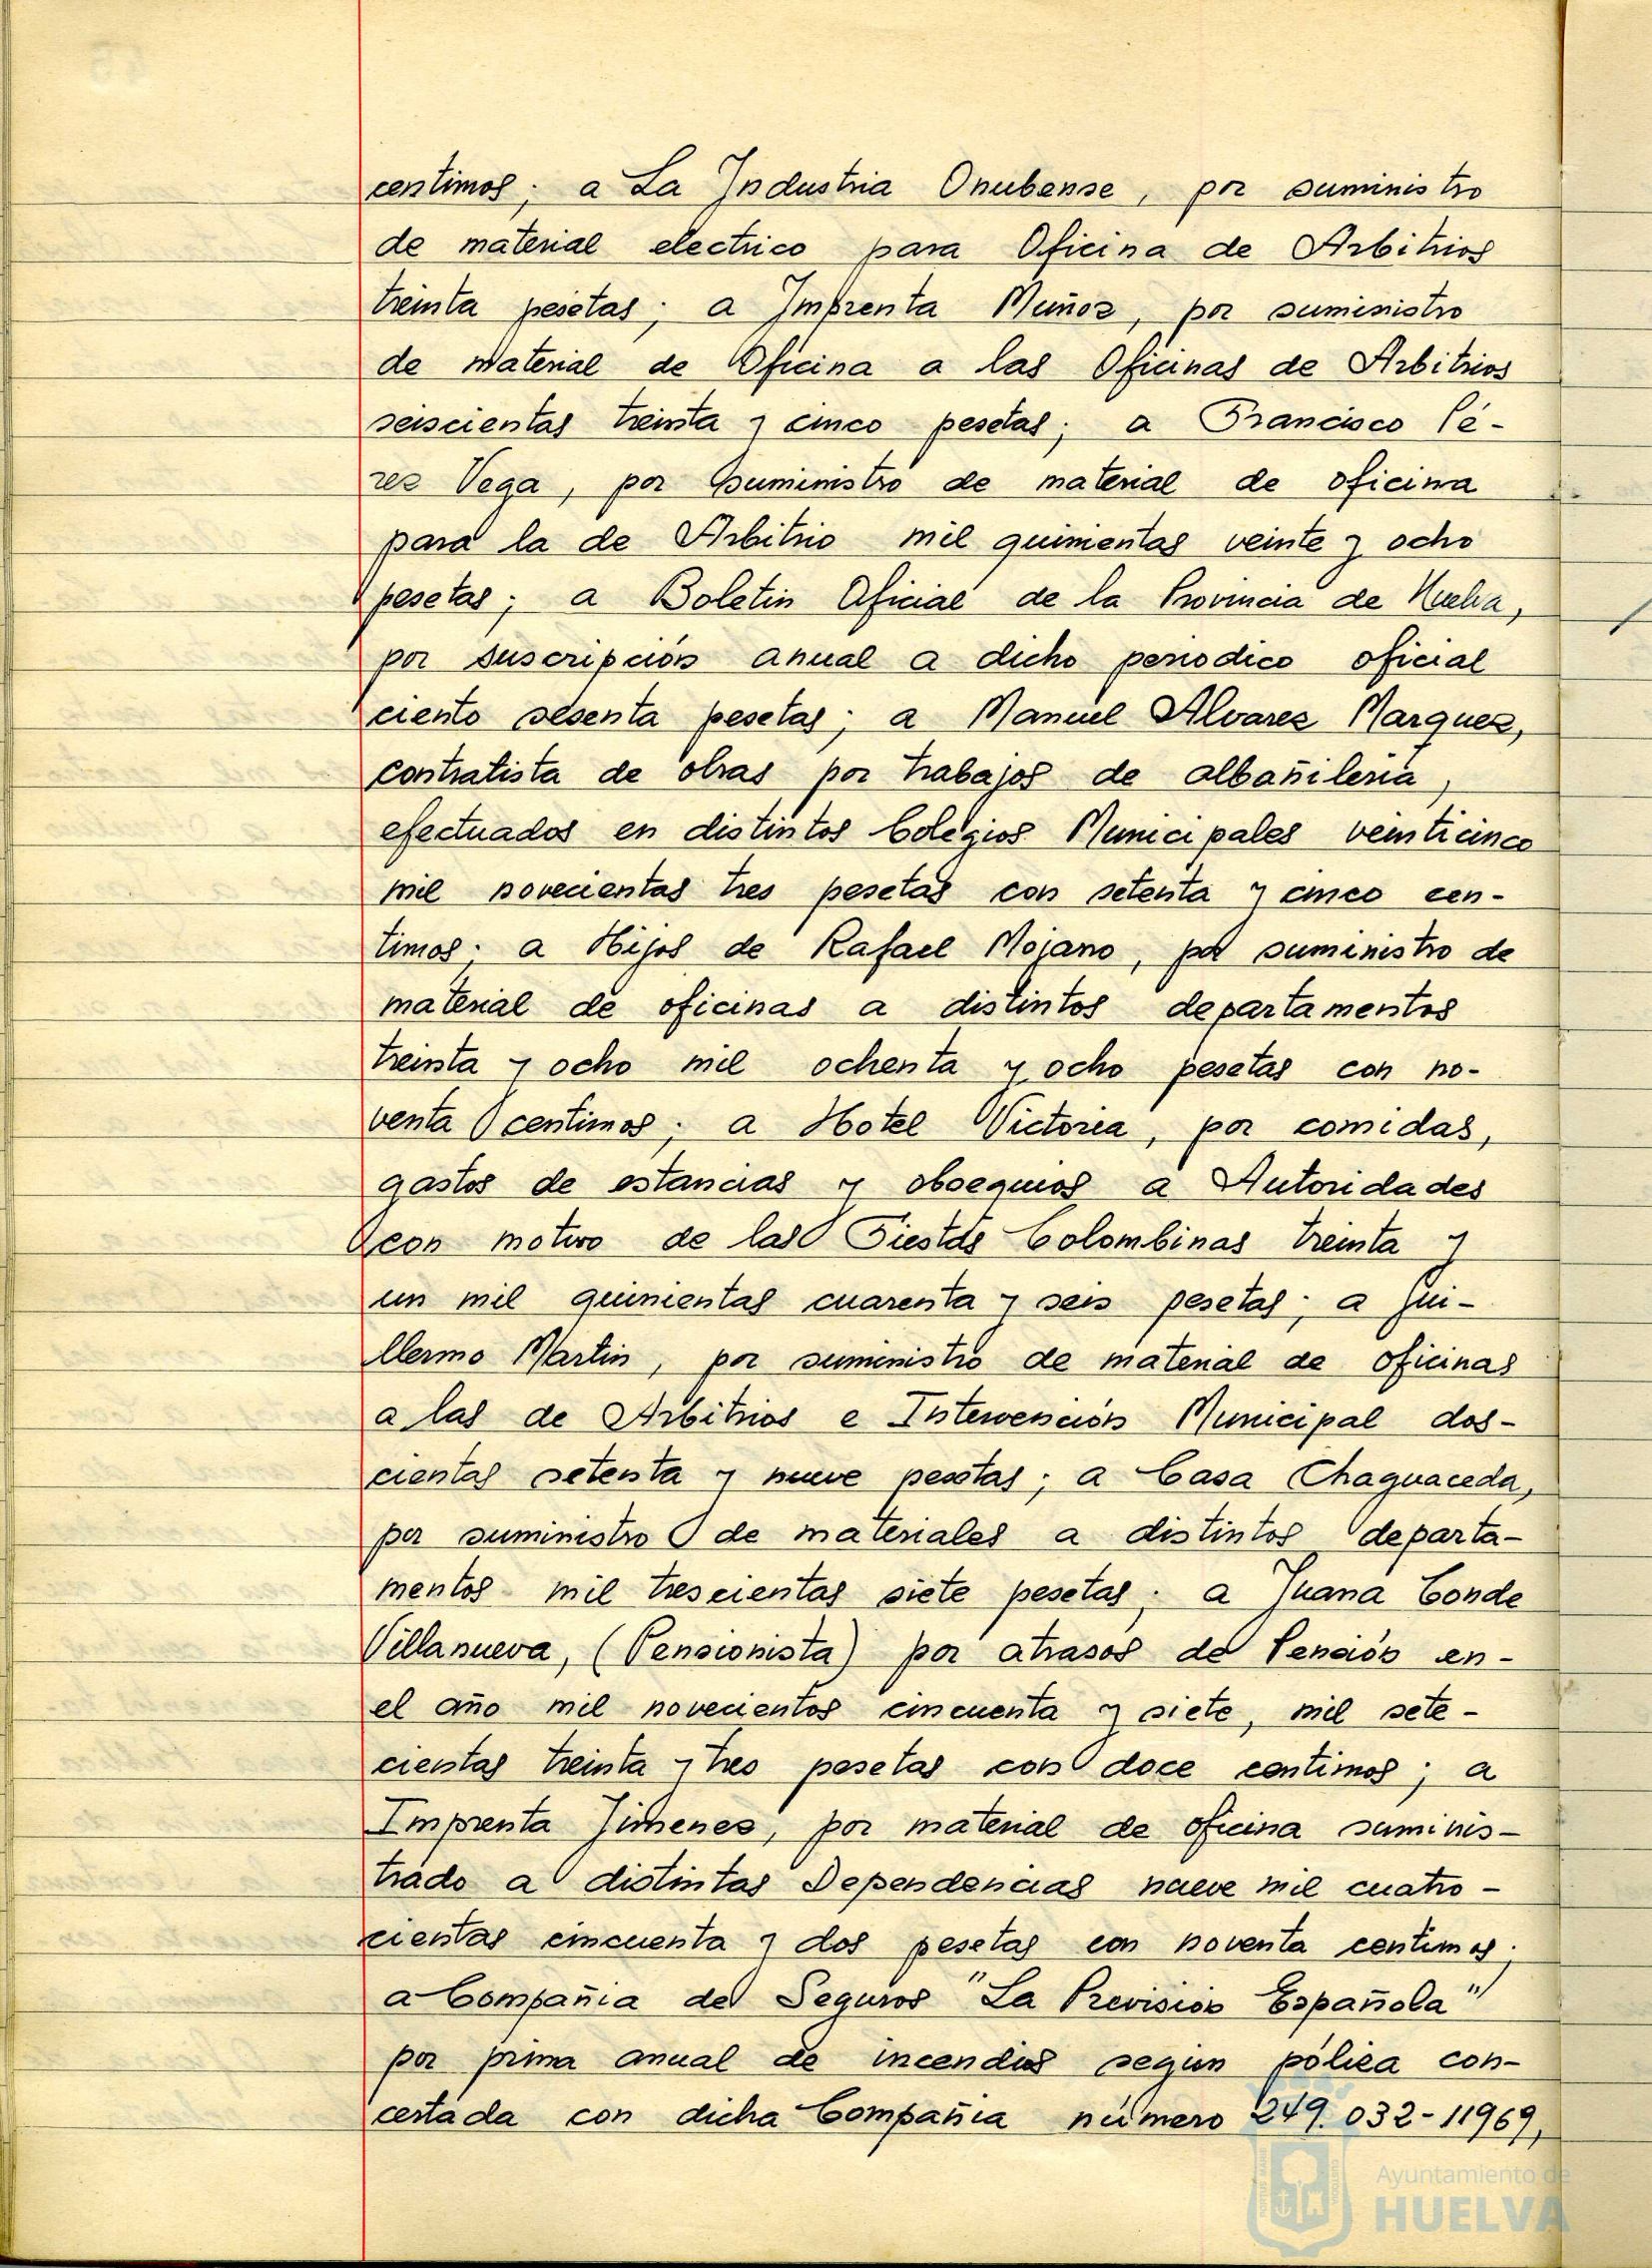 centimos; a La Industria Onubense, por suministro
de material electrico para Oficina de Arbitrios
treinta pesetas; a Imprenta Muñoz, por suministro
de material de Oficina a las Oficinas de Arbitrios
seiscientas treinta y cinco pesetas; a Francisco Pé-
rez Vega, por suministro de material de oficina
para la de Arbitrio mil quinientas veinte y ocho
pesetas; a Boletin Oficial de la Provincia de Huelva,
por suscripción anual a dicho periodico oficial
ciento sesenta pesetas; a Manuel Alvarez Marquez,
contratista de obras por trabajos de albañileria,
efectuados en distintos Colegios Municipales veinticinco
mil novecientas tres pesetas con setenta y cinco cen-
timos; a Hijos de Rafael Mojano, por suministro de
material de oficinas a distintos departamentos
treinta y ocho mil ochenta y ocho pesetas con no-
venta centimos; a Hotel Victoria, por comidas,
gastos de estancias y obsequios a Autoridades
con motivo de las Fiestas Colombinas treinta y
un mil quinientas cuarenta y seis pesetas; a Gui-
llermo Martin, por suministro de material de oficinas
a las de Arbitrios e Intervención Municipal dos-
cientas setenta y nueve pesetas; a Casa Chaguaceda,
por suministro de materiales a distintos departa-
mentos mil trescientas siete pesetas; a Juana Conde
Villanueva, (Pensionista) por atrasos de Pensión en-
el año mil novecientos cincuenta y siete, mil sete-
cientas treinta y tres pesetas con doce centimos; a
Imprenta Jimenez, por material de oficina suminis-
trado a distintas Dependencias nueve mil cuatro-
cientas cincuenta y dos pesetas con noventa centimos;
a Compañia de Seguros "La Previsión Española"
por prima anual de incendios segun póliza con-
certada con dicha Compañia número 249.032-11969,
Ayuntamiento de
HUELVA